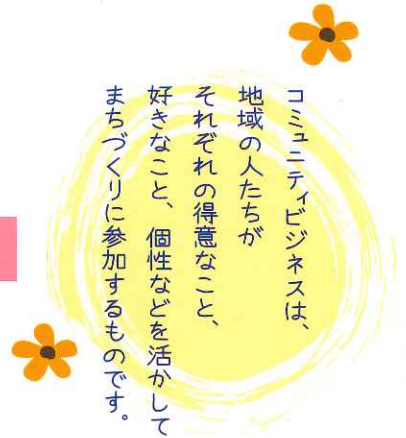 コミュニティビジネスは、
地域の人たちが
それぞれの得意なこと、
好きなこと、個性などを活かして
まちづくりに参加するものです。